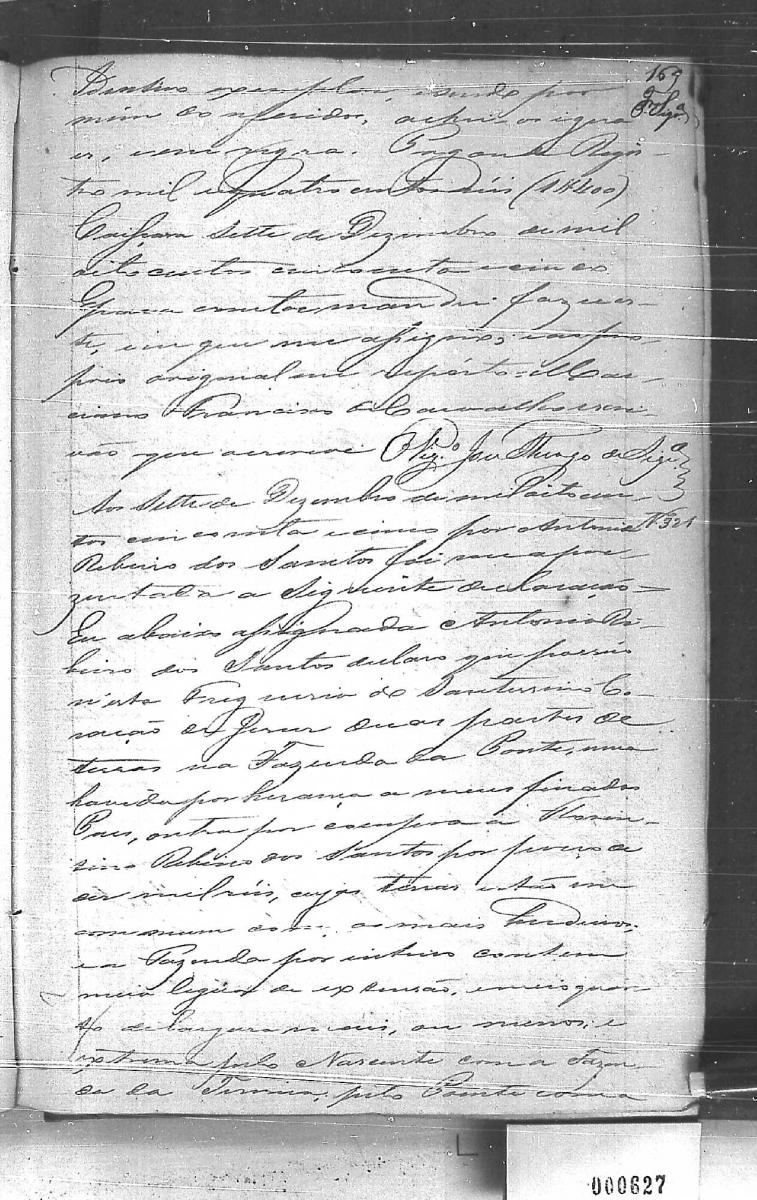 169
Dentro exemplar, sendo por
mim conferidos, achei-os igua
es, sem regra. Pagou de Regis-
tro mil e quatro centos reis (1#400)
Caissara Sette de Dezembro de mil
oito centos cincoenta e cinco
E para constar mandei fazer es-
te, em que me assigno; e ao pro-
prio original me reporto = Mar-
cimo Francisco de Carvalho escri-
vão que escrevi O Vigº José Thiago de Siqrª
Aos Sette de Dezembro de mil oito cen-
tos cincoenta e cinco por Antonio
Nº 321
Ribeiro dos Santos foi me apre
zentada a Siguinte declaração =
Eu abaixo assignado Antonio Ri-
beiro dos Santos declaro que possuo
n'esta Freguezia do Santissimo Co-
ração de Jesus duas partes de
terras na Fazenda da Ponte, uma
havida por herança a meus finados
Paes, outra por compra a Floren-
tino Ribeiro dos Santos por preço de
dez mil réis, cujas terras estão em
commum com os mais herdeiros,
e a Fazenda por inteiro contem
meia legoa de extensão, e meia quar-
to de largura mais, ou menos; e
extrema pelo Nascente com a Fazen-
da da pelo Poente com a
000627